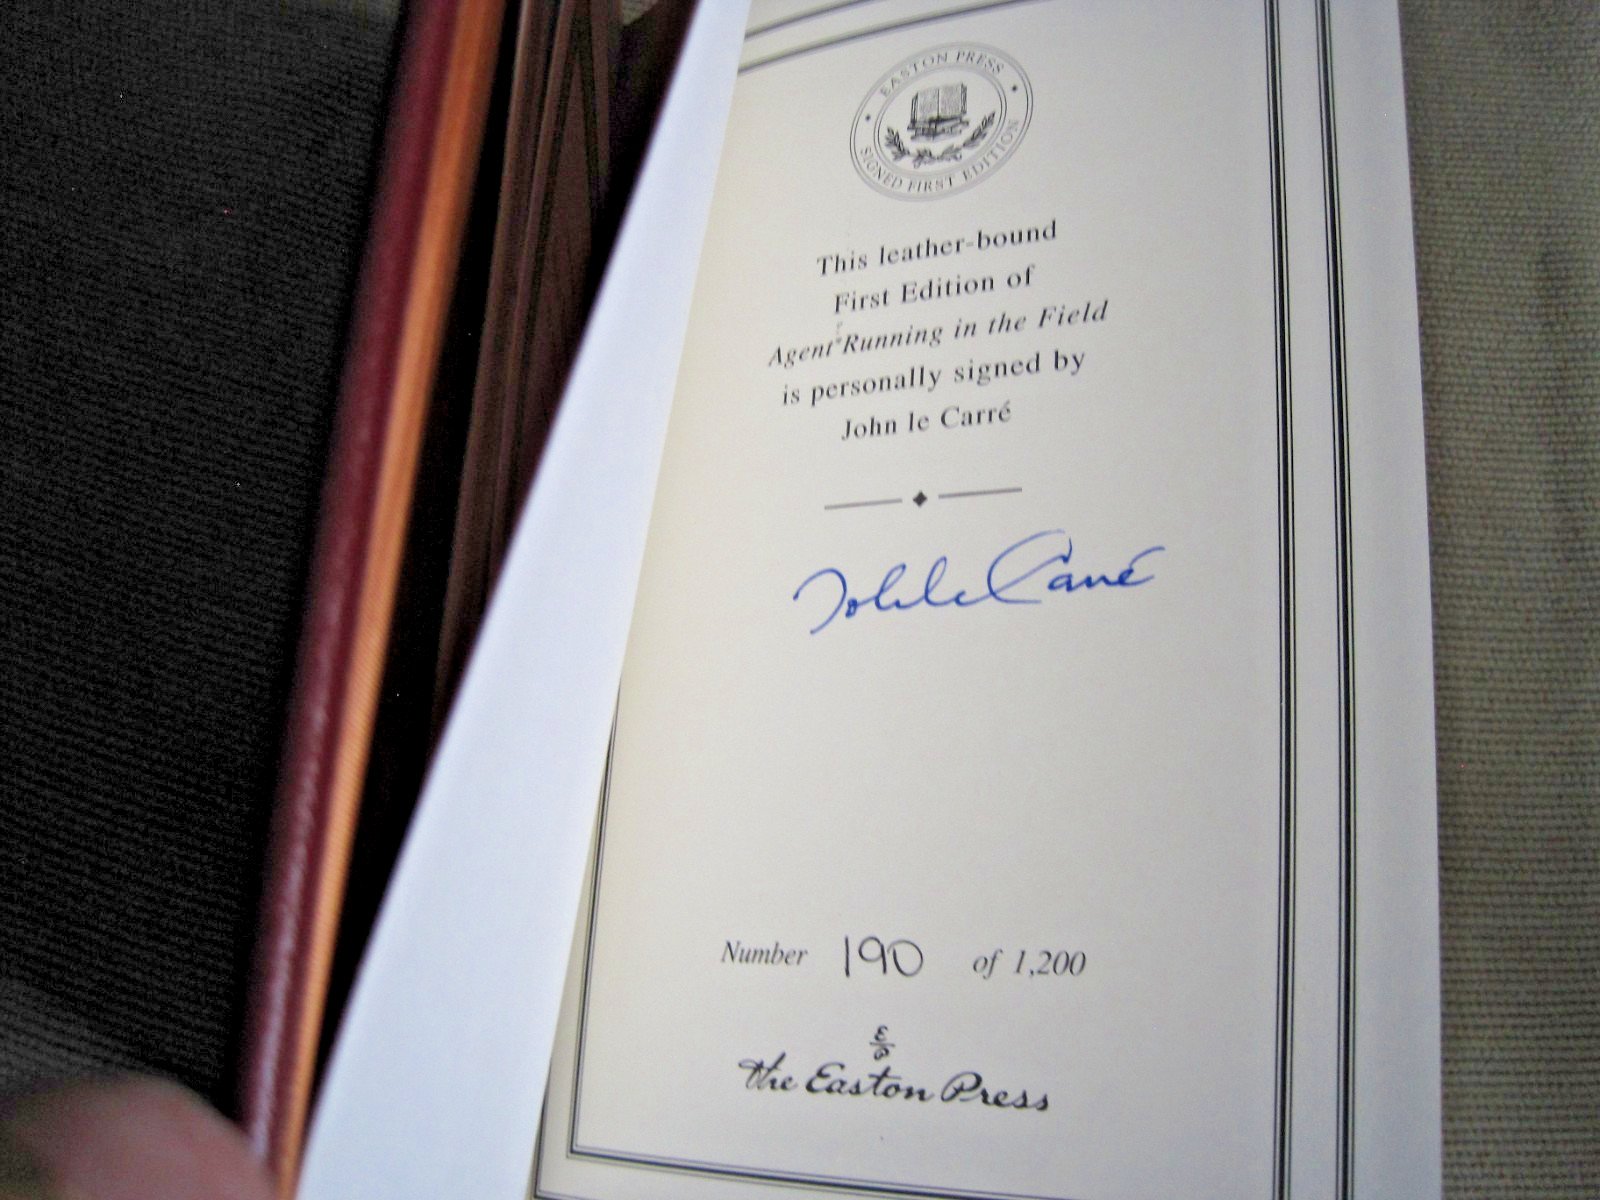 EASTON PRESS
SIGNED FIRST EDITION
This leather-bound
First Edition of
Agent Running in the Field
is personally signed by
John le Carré
John le Carré
Number 190 of 1,200
E/P
the Easton Press